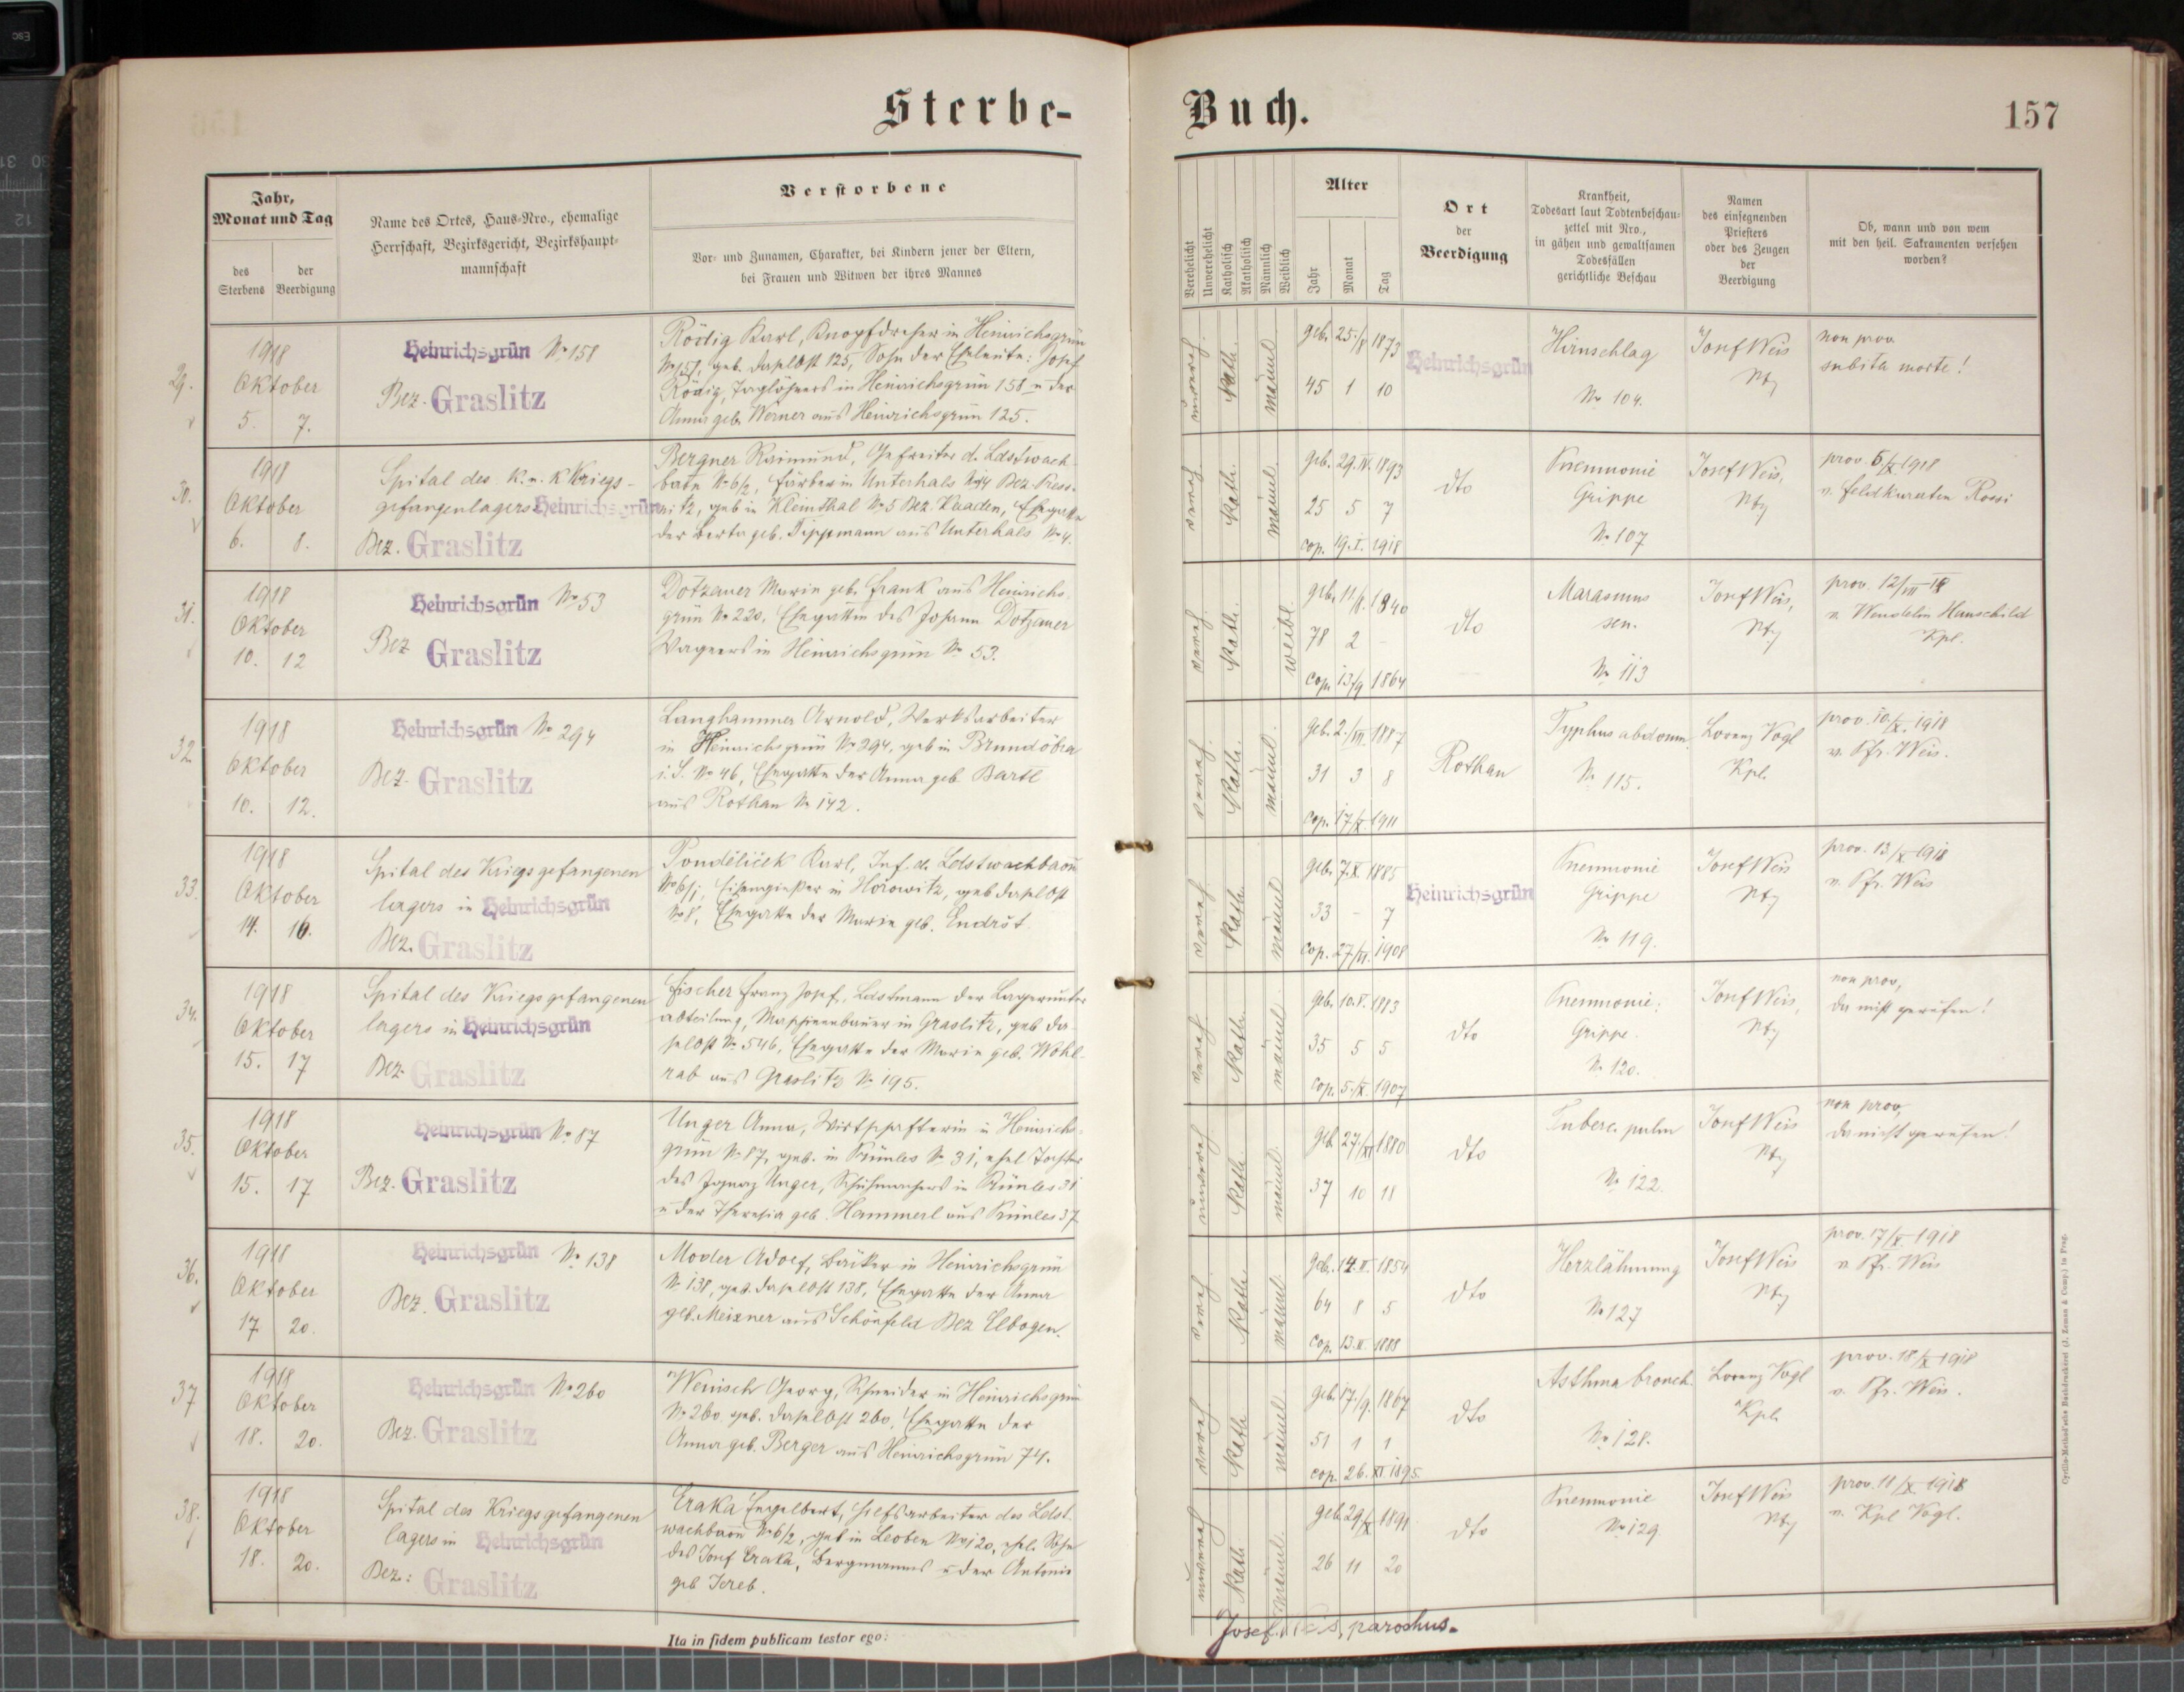 Sterbe-
Buch.
157
Jahr,
Monat und Tag
des
Sterbens
der
Beerdigung
Name des Ortes, Haus-Nro., ehemalige
Herrschaft, Bezirksgericht, Bezirkshaupt-
mannschaft
Verstorbene
Vor- und Zunamen, Charakter, bei Kindern jener der Eltern,
bei Frauen und Witwen der ihres Mannes
Verehelicht
Unverehelicht
Katholisch
Akatholisch
Männlich
Weiblich
Alter
Jahr
Monat
Tag
Ort
der
Beerdigung
Krankheit,
Todesart laut Todtenbeschau-
zettel mit Nro.,
in gähen und gewaltsamen
Todesfällen
gerichtliche Beschau
Namen
des einsegnenden
Priesters
oder des Zeugen
der
Beerdigung
Ob, wann und von wem
mit den heil. Sakramenten versehen
worden?
29.
1918
Oktober
5. 7.
Heinrichsgrün No 158
Bez. Graslitz
Rödig Karl, Knopfdreher in Heinrichsgrün
No 158, geb. daselbst 125, Sohn der Eheleute: Josef
Rödig, Taglöhners in Heinrichsgrün 158 u. der
Anna geb. Werner aus Heinrichsgrün 125.
unvereh.
Kath.
männl
geb. 25./8 1873
45 1 10
Heinrichsgrün
Hirnschlag
No 104.
Josef Weis
Pfr
non prov.
subita morte!
30.
1918
Oktober
6. 8.
Spital des k. u. k Kriegs-
gefangenlagers Heinrichsgrün
Bez. Graslitz
Bergner Raimund, Gefreiter d. Ldstwach
baon No 6/2, Färber in Unterhals No 4 Bez. Press-
nitz, geb in Kleinthal No 5 Bez. Kaaden, Ehegatte
der Berta geb. Tippmann aus Unterhals No 4.
vereh
Kath.
männl.
geb. 29. IV. 1893
25 5 7
cop. 19. I. 1918
dto
Pneumonie
Grippe
No 107
Josef Weis,
Pfr
prov. 6/X 1918
v. Feldkuraten Rossi
31.
1918
Oktober
10. 12
Heinrichsgrün No 53
Bez Graslitz
Dotzauer Marie geb. Frank aus Heinrichs-
grün No 220, Ehegattin des Johann Dotzauer
Wagners in Heinrichsgrün No 53.
vereh.
Kath.
weibl.
geb. 11/8. 1840
78 2 -
cop. 13/9 1864
dto
Marasmus
sen.
No 113
Josef Weis,
Pfr
prov. 12/VII-18
v. Wendelin Hauschild
Kpl.
32.
1918
Oktober
10. 12.
Heinrichsgrün No 294
Bez. Graslitz
Langhammer Arnold, Werksarbeiter
in Heinrichsgrün No 294, geb in Brundöbra
i. S. No 46, Ehegatte der Anna geb. Bartl
aus Rothau No 142.
vereh.
Kath.
männl.
geb. 2./VII. 1887
31 3 8
cop. 17/X. 1911
Rothau
Typhus abdom.
No 115.
Lorenz Vogl
Kpl.
prov. 10/X. 1918
v. Pfr. Weis.
33.
1918
Oktober
14. 16.
Spital des Kriegsgefangenen
lagers in Heinrichsgrün
Bez. Graslitz
Pondělíček Karl, Inf. d. Ldstwachbaon
No 6/1, Eisengießer in Horowitz, geb daselbst
No 8, Ehegatte der Marie geb. Endršt.
vereh.
Kath.
männl
geb. 7. X. 1885
33 - 7
cop. 27/VI. 1908
Heinrichsgrün
Pneumonie
Grippe
No 119.
Josef Weis
Pfr
prov. 13/X 1918
v. Pfr. Weis
34.
1918
Oktober
15. 17
Spital des Kriegsgefangenen
lagers in Heinrichsgrün
Bez. Graslitz
Fischer Franz Josef, Ldstmann der Lagerunter
abteilung, Maschinenbauer in Graslitz, geb da-
selbst No 546, Ehegatte der Marie geb. Wohl-
rab aus Graslitz No 195.
vereh.
Kath.
männl.
geb. 10. V. 1883
35 5 5
cop. 5./X. 1907
dto
Pneumonie:
Grippe.
No 120.
Josef Weis,
Pfr
non prov,
da nicht gerufen!
35.
1918
Oktober
15. 17
Heinrichsgrün No 87
Bez. Graslitz
Unger Anna, Wirtschafterin in Heinrichs-
grün No 87, geb. in Prünles No 31, ehel. Tochter
des Ignaz Unger, Schuhmachers in Prünles 31
u. der Theresia geb. Hammerl aus Prünles 37
unvereh
Kath.
männl.
geb 27./XI 1880
37 10 18
dto
Tuberc. pulm
No 122.
Josef Weis
Pfr
non prov,
da nicht gerufen!
36.
1918
Oktober
17 20.
Heinrichsgrün No 138
Bez. Graslitz
Moder Adolf, Bäcker in Heinrichsgrün
No 138, geb. daselbst 138, Ehegatte der Anna
geb. Meixner aus Schönfeld Bez Elbogen.
vereh.
Kath.
männl.
geb. 14. II. 1854
64 8 5
cop. 13. II. 1888
dto
Herzlähmung
No 127
Josef Weis
Pfr
prov. 17/X 1918
v. Pfr. Weis
37
1918
Oktober
18. 20.
Heinrichsgrün No 260
Bez. Graslitz
Wenisch Georg, Schneider in Heinrichsgrün
No 260, geb. daselbst 260, Ehegatte der
Anna geb. Berger aus Heinrichsgrün 74.
vereh.
Kath.
männl.
geb. 17./9. 1867
51 1 1
cop. 26. XI 1895.
dto
Asthma bronch.
No 128.
Lorenz Vogl
Kpl.
prov. 18/X 1918
v. Pfr. Weis.
38.
1918
Oktober
18. 20.
Spital des Kriegsgefangenen
lagers in Heinrichsgrün
Bez.: Graslitz
Eraka Engelbert, Hilfsarbeiter des Ldst.
wachbaon No 6/2, geb in Leoben No 120, ehel. Sohn
des Josef Eraka, Bergmanns u. der Antonie
geb Jereb.
unvereh
Kath
männl.
geb. 29/X 1891
26 11 20
dto
Pneumonie
No 129
Josef Weis
Pfr
prov. 11/X 1918
v. Kpl Vogl.
Ita in fidem publicam testor ego:
Josef Weis, parochus.
Cyrillo-Method'sche Buchdruckerei (J. Zeman & Comp.) in Prag.